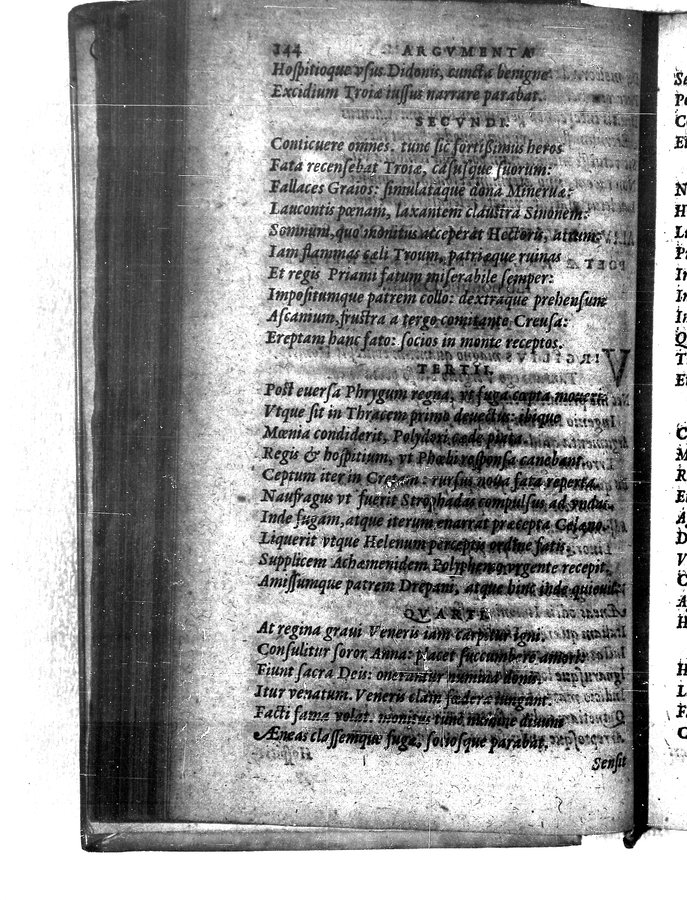 144 ARGVMENTA
Hoſpitioque vſus Didonis, cuncta benigne
Excidium Troiæ iuſſus narrare parabat.
SECVNDI.
Conticuere omnes. tunc ſic fortißimus heros
Fata recenſebat Troiæ, caſuſque ſuorum:
Fallaces Graios: ſimulataque dona Mineruæ:
Laucontis pœnam, laxantem clauſtra Sinonem:
Somnum, quo monitus acceperat Hectoris, atrum:
Iam flammas cæli Troum, patriæque ruinas
Et regis Priami fatum miſerabile ſemper:
Impoſitumque patrem collo: dextraque prehenſum
Aſcanium, fruſtra a tergo comitante Creuſa:
Ereptam hanc fato: ſocios in monte receptos.
TERTII.
Poſt euerſa Phrygum regna, vt fuga cœpta moueri
Vtque ſit in Thracem primo deuectus: ibique
Mœnia condiderit, Polydori cæde
Regis & hoſpitium, vt Phœbi reſponſa canebant.
Ceptum iter in : rurſus noua fata reperta.
Naufragus vt fuerit Strophadas compulſus ad
Inde fugam, atque iterum enarrat præcepta Celæno.
Liquerit vtque Helenum ordine fatis.
Supplicem Achæmenidem Polyphemo vrgente recepit,
Amiſſumque patrem Drepani, atque hinc inde
QVARTI.
At regina graui Veneris iam carpitur igni.
Conſulitur ſoror Anna: placet ſuccumbere amori:
Fiunt ſacra Deis: onerantur numina donis.
Itur venatum. Veneris clam fœdera iungunt.
Facti fama volat. monitus tunc numine diuum
Æneas claſſemque fugæ, ſocioſque parabat.
Senſit